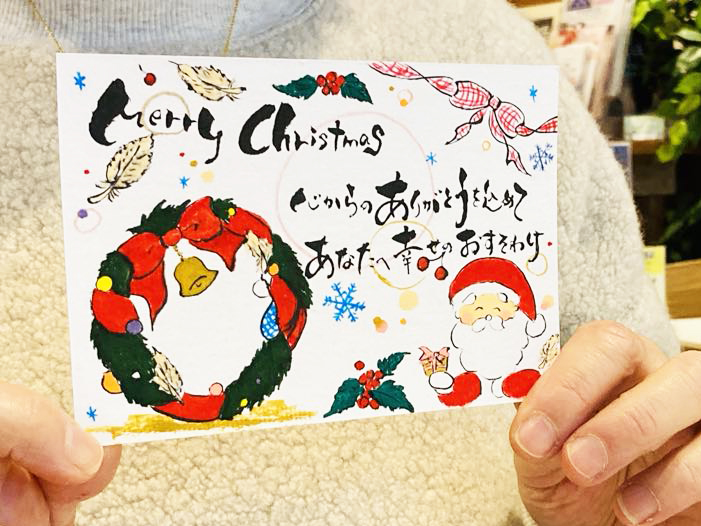 Merry Christmas
心からのありがとうを込めて
あなたへ幸せのおすそわけ